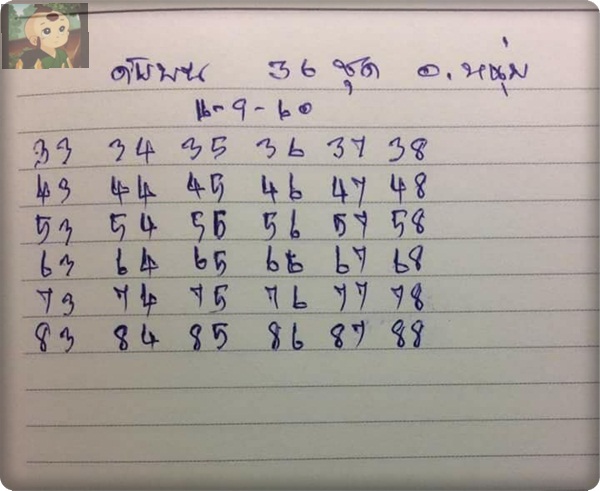 ดับบน 36 ชุด อ.หนุ่ม
16-9-60
33 34 35 36 37 38
43 44 45 46 47 48
53 54 55 56 57 58
63 64 65 66 67 68
73 74 75 76 77 78
83 84 85 86 87 88